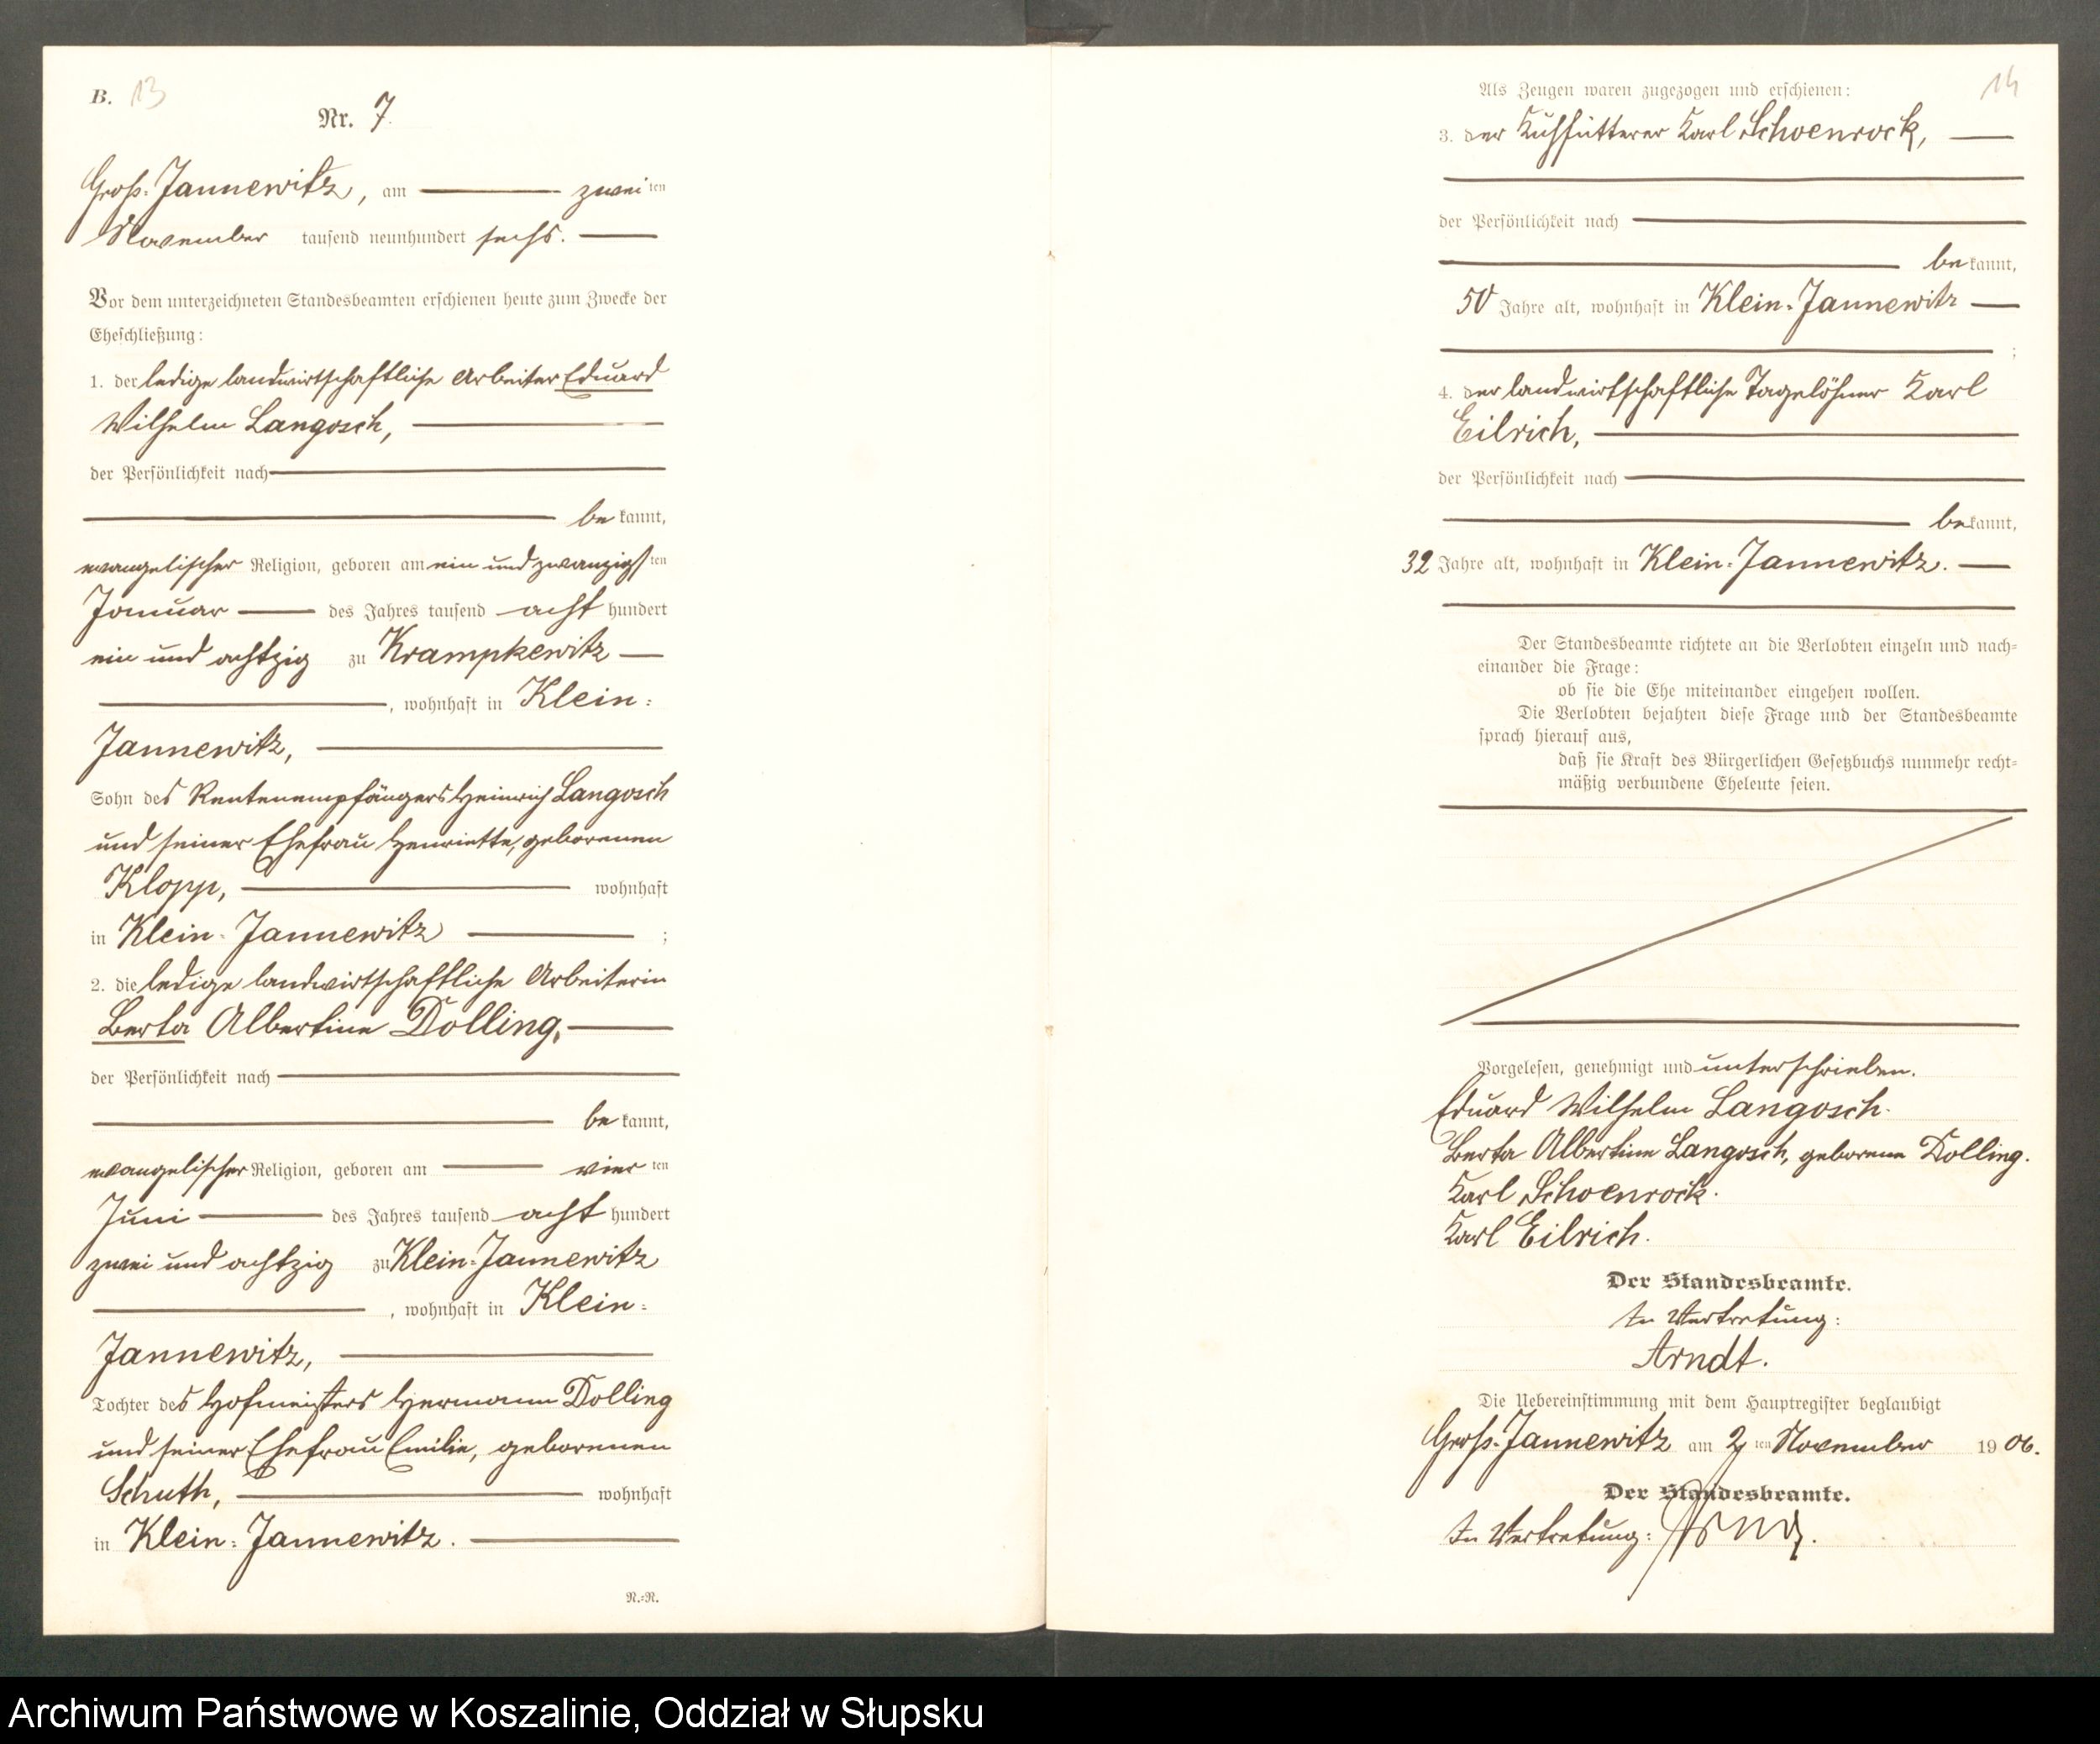 B. 13
Nr. 7.
Groß-Jannewitz, am zweiten
November tausend neunhundert sechs.
Vor dem unterzeichneten Standesbeamten erschienen heute zum Zwecke der
Eheschließung:
1. der ledige landwirtschaftliche Arbeiter Eduard
Wilhelm Langosch,
der Persönlichkeit nach
bekannt,
evangelischer Religion, geboren am ein und zwanzigsten
Januar des Jahres tausend acht hundert
ein und achtzig zu Krampkewitz
, wohnhaft in Klein-
Jannewitz,
Sohn des Rentenempfängers Heinrich Langosch
und seiner Ehefrau Henriette, geborenen
Klopp, wohnhaft
in Klein-Jannewitz ;
2. die ledige landwirtschaftliche Arbeiterin
Berta Albertine Dolling,
der Persönlichkeit nach
bekannt,
evangelischer Religion, geboren am vierten
Juni des Jahres tausend acht hundert
zwei und achtzig zu Klein-Jannewitz
, wohnhaft in Klein-
Jannewitz,
Tochter des Hofmeisters Hermann Dolling
und seiner Ehefrau Emilie, geborenen
Schuth, wohnhaft
in Klein-Jannewitz.
N.=N.
14
Als Zeugen waren zugezogen und erschienen:
3. der Kuhfütterer Karl Schoenrock,
der Persönlichkeit nach
bekannt,
50 Jahre alt, wohnhaft in Klein-Jannewitz
;
4. der landwirtschaftliche Tagelöhner Karl
Eilrich,
der Persönlichkeit nach
bekannt,
32 Jahre alt, wohnhaft in Klein-Jannewitz.
Der Standesbeamte richtete an die Verlobten einzeln und nach=
einander die Frage:
ob sie die Ehe miteinander eingehen wollen.
Die Verlobten bejahten diese Frage und der Standesbeamte
sprach hierauf aus,
daß sie Kraft des Bürgerlichen Gesetzbuchs nunmehr recht=
mäßig verbundene Eheleute seien.
Vorgelesen, genehmigt und unterschrieben.
Eduard Wilhelm Langosch.
Berta Albertine Langosch, geborene Dolling.
Karl Schoenrock.
Karl Eilrich.
Der Standesbeamte.
In Vertretung:
Arndt.
Die Uebereinstimmung mit dem Hauptregister beglaubigt
Groß-Jannewitz am 2ten November 1906.
Der Standesbeamte.
In Vertretung: Arndt.
Archiwum Państwowe w Koszalinie, Oddział w Słupsku